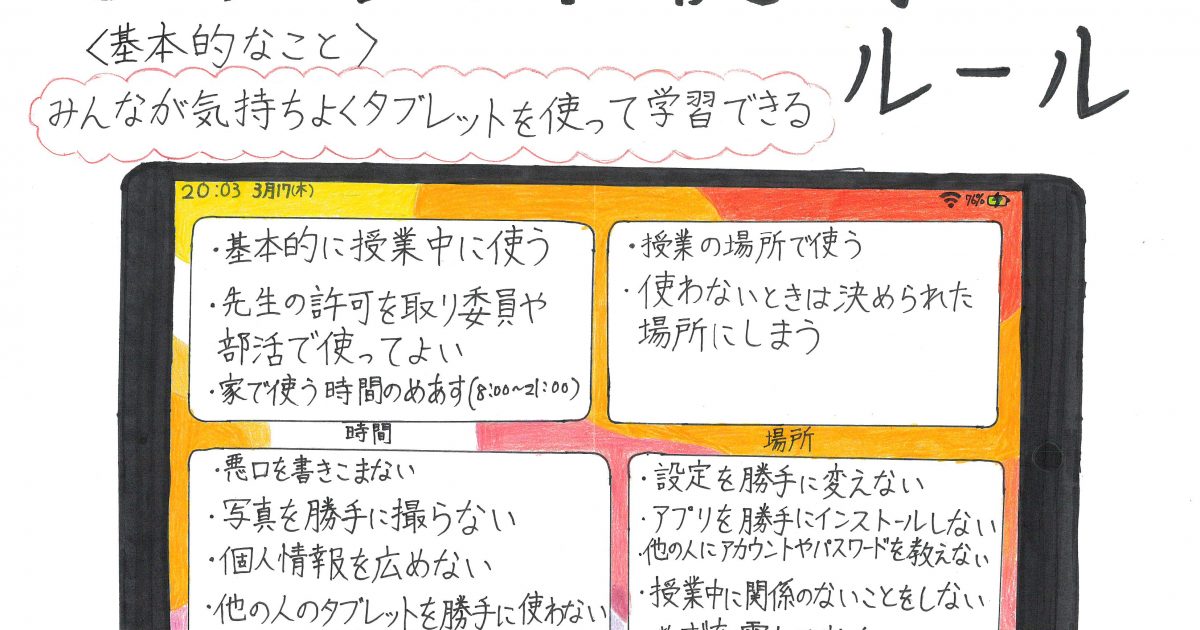 ルール
〈基本的なこと〉
みんなが気持ちよくタブレットを使って学習できる
20:03 3月17(木)
76%
・基本的に授業中に使う
・先生の許可を取り委員や
部活で使ってよい
・家で使う時間のめあす(8:00~21:00)
時間
・授業の場所で使う
・使わないときは決められた
場所にしまう
場所
・悪口を書きこまない
・写真を勝手に撮らない
・個人情報を広めない
・他の人のタブレットを勝手に使わない
・設定を勝手に変えない
・アプリを勝手にインストールしない
・他の人にアカウントやパスワードを教えない
・授業中に関係のないことをしない